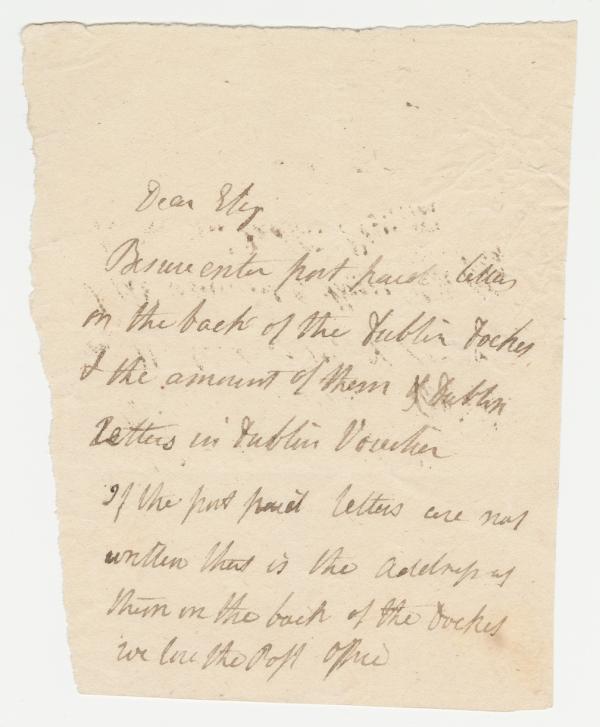 Dear Eliz
Be sure enter post paid letters
on the back of the Dublin Dockes
& the amount of them & Dublin
Letters in Dublin Voucher
If the post paid letters are not
written that is the address of
them on the back of the Dockes
we lose the Post Office